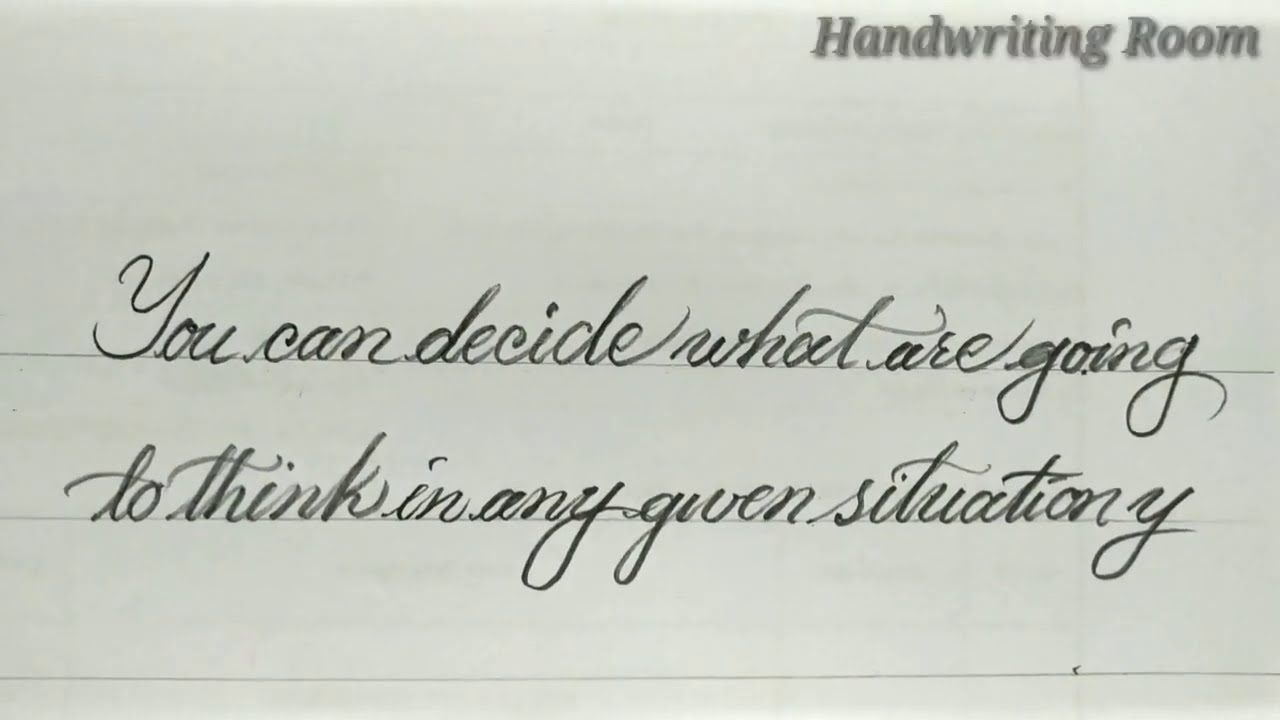 Handwriting Room
You can decide what are going
to think in any given situation y